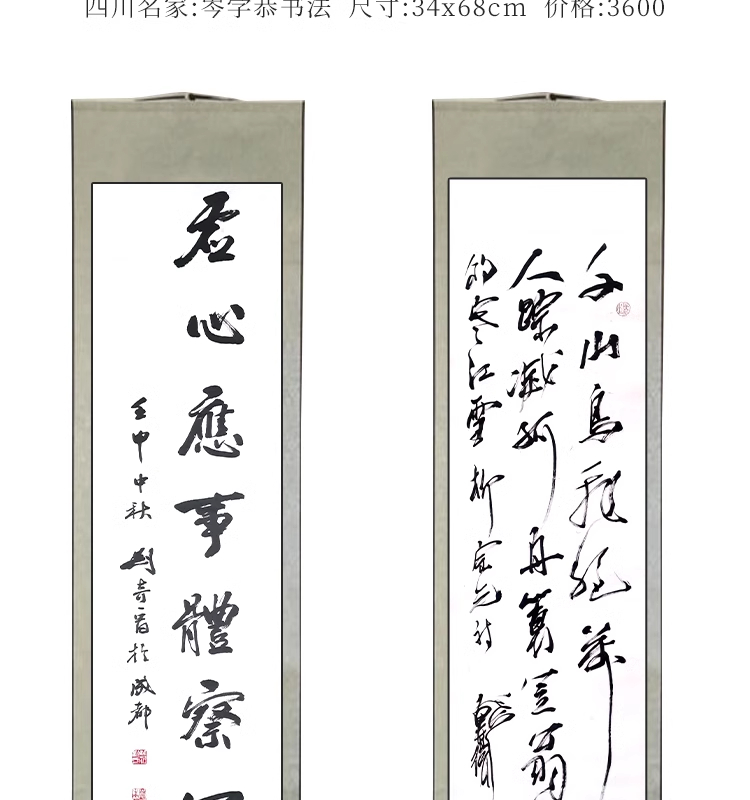 四川名家:岑学恭书法 尺寸:34x68cm 价格:3600
虚心應事體察
壬申中秋 劉奇晋於成都
千山鳥飛絕萬
人踪滅孤舟蓑笠翁
釣寒江雪 柳宗元詩